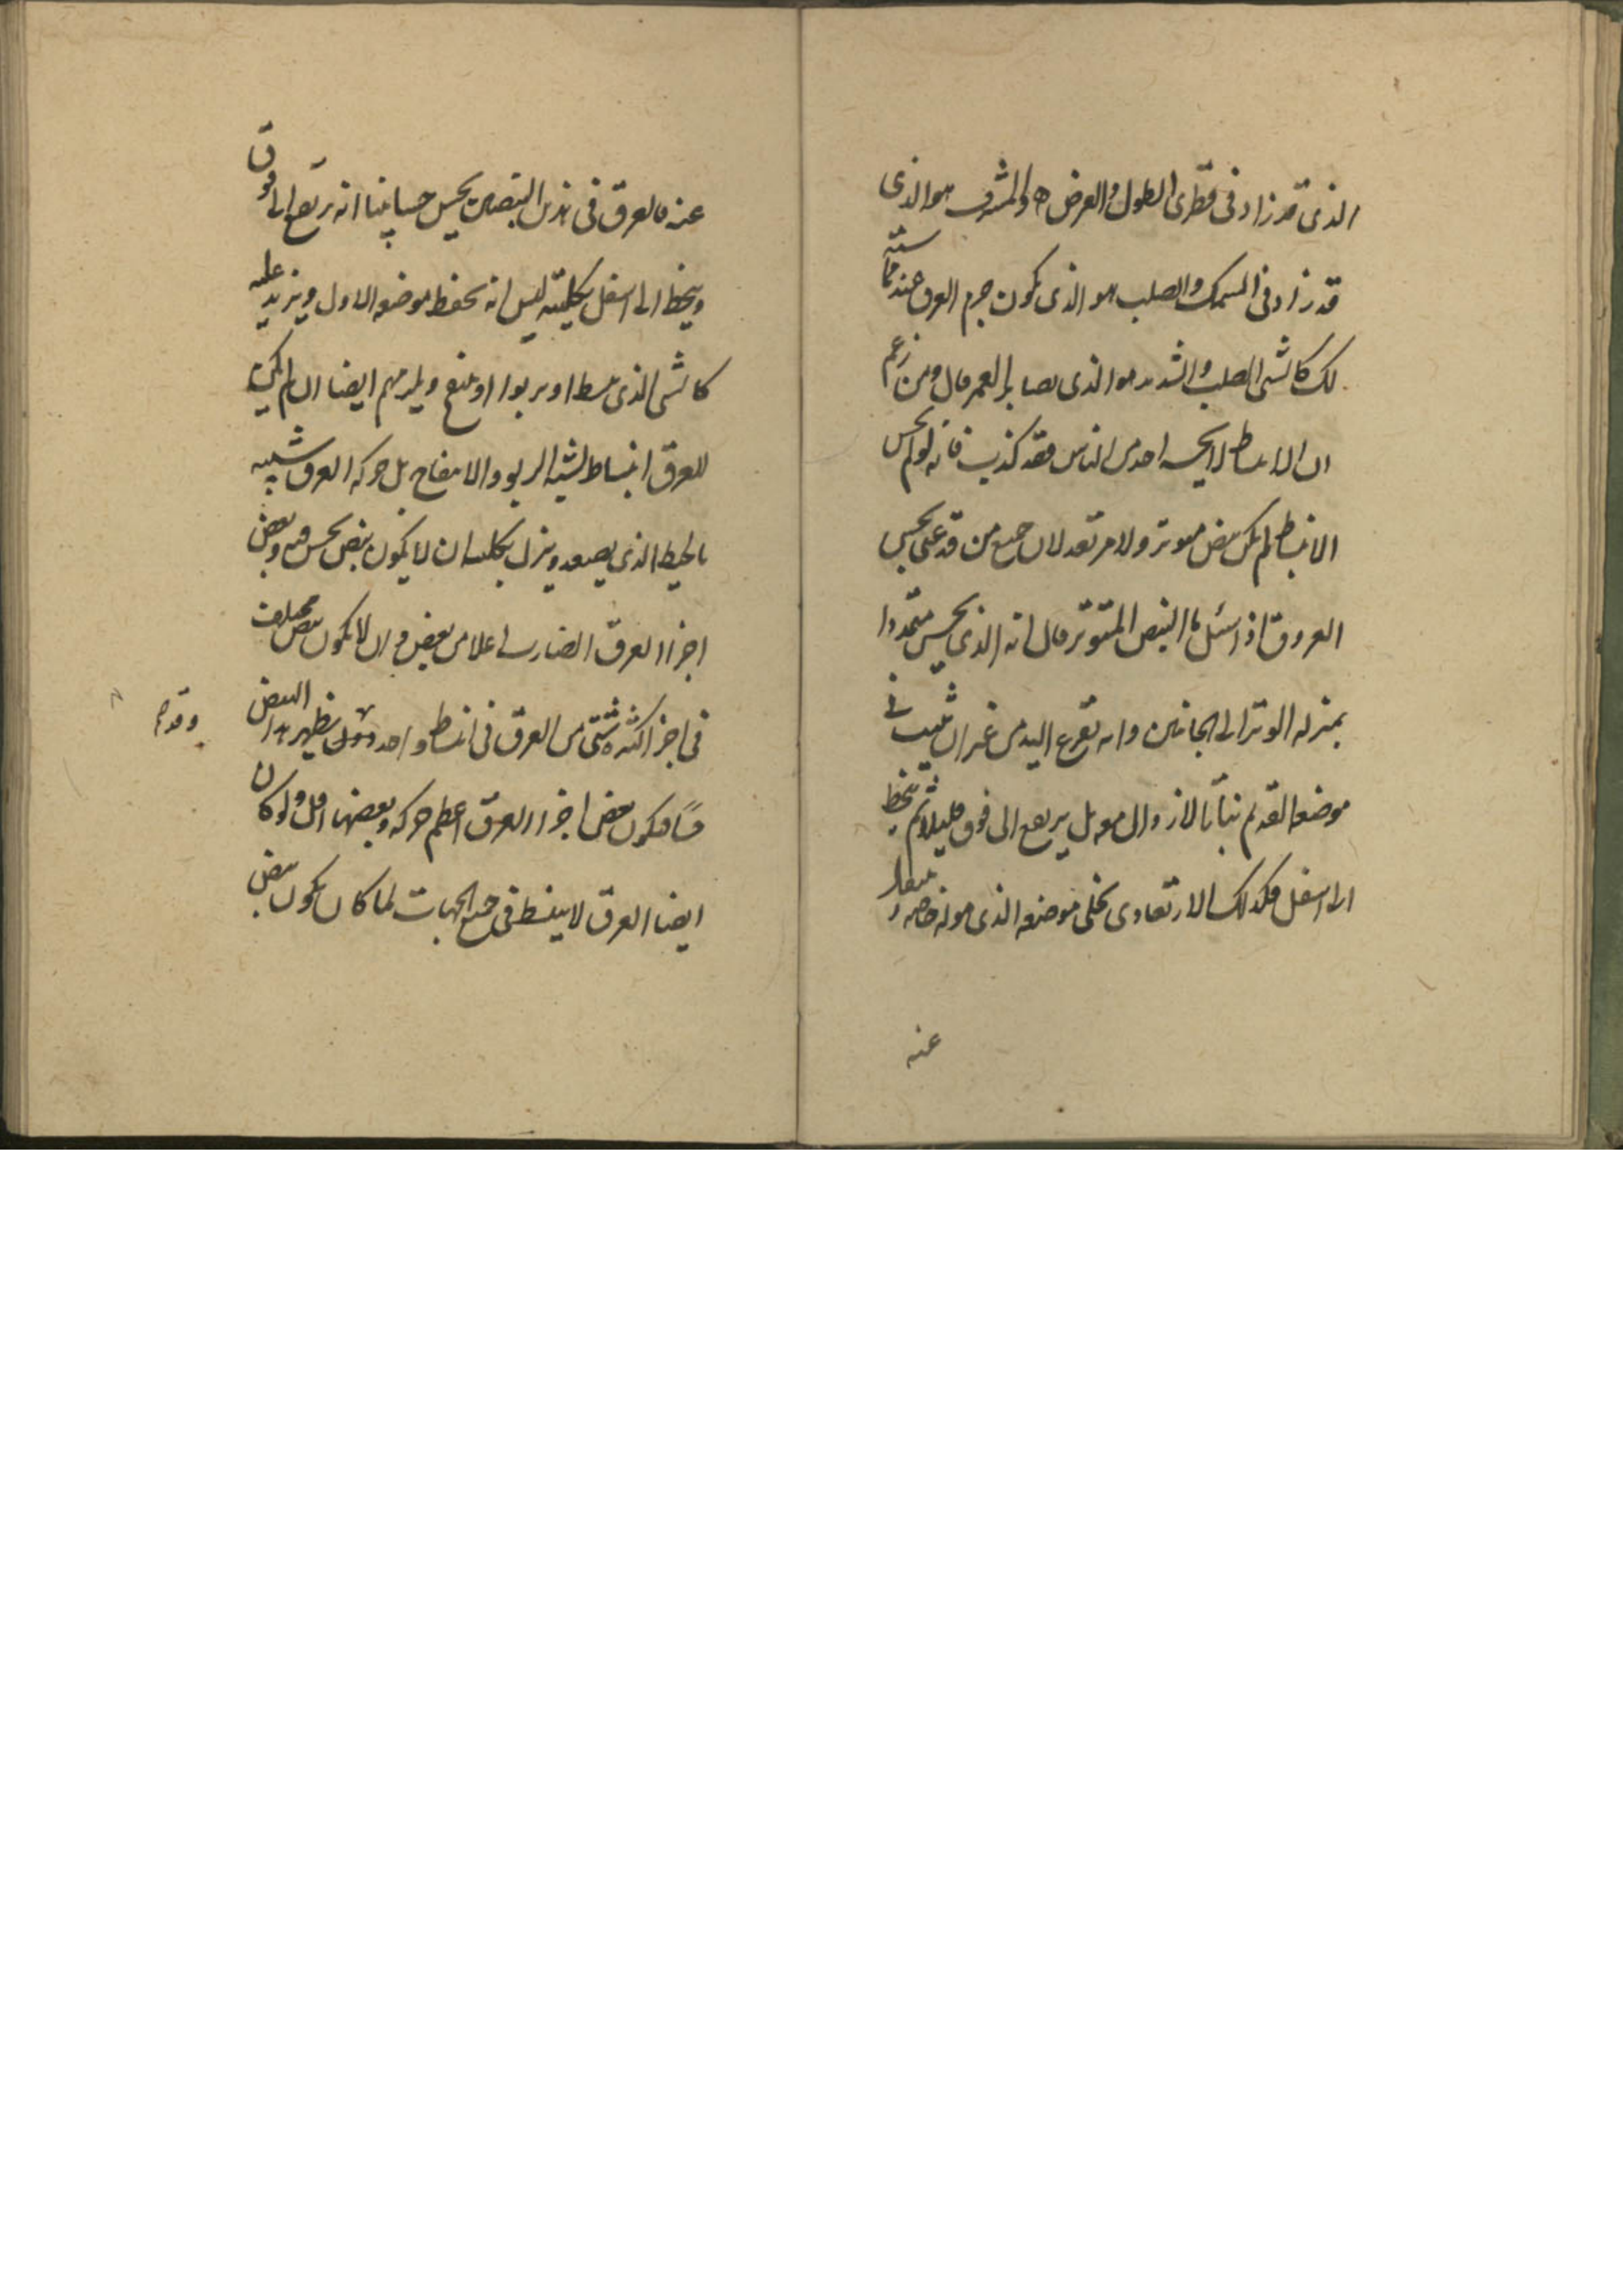 الذى قد زاد فى قطرى الطول والعرض والمشرف هو الذى
قد زاد فى السمك والصلب هو الذى يكون جرم العرق عند مماسته
لك كالشى الصلب والشديد هو الذى يصابر الغمر قال ومن زعم
ان الانبساط لا يحسه احد من الناس فقد كذب فانه لو لم يحس
الانبساط لم يكن نبض متوتر ولا مرتعد لان جميع من قد عنى بحس
العروق اذا سئل ما النبض المتوتر قال انه الذى يحس متمددا
بمنزله الوتر الى الجانبين وانه يقرع اليد من غير ان يثبت فى
موضعه القديم ثباتا لا زوال معه بل يرتفع الى فوق قليلا ثم ينحط
الى اسفل فكذلك الارتعادى يخلى موضعه الذى هو له خاصه و
عنه
عنه فالعرق فى هذين النبضين يحس حسا بينا انه يرتفع الى فوق
وينحط الى اسفل بكليته ليس انه يحفظ موضعه الاول ويزيد عليه
كالشى الذى ينبسط او يربوا او ينتفخ ويلزمهم ايضا ان لم يكن
للعرق انبساط يشبه الربو والانتفاخ بل حركه العرق شبيه
بالخيط الذى يصعد وينزل بكليته ان لا يكون نبض يحس فيه بعض
اجزا العرق الضارب اعلا من بعض وان لا يكون نبض مختلف
فى اجزا كثيره شتى من العرق فى انبساط واحد يظهر هذا النبض
فيكون بعض اجزا العرق اعظم حركه وبعضها اقل ولو كان
ايضا العرق لا ينبسط فى جميع الجهات لما كان يكون نبض